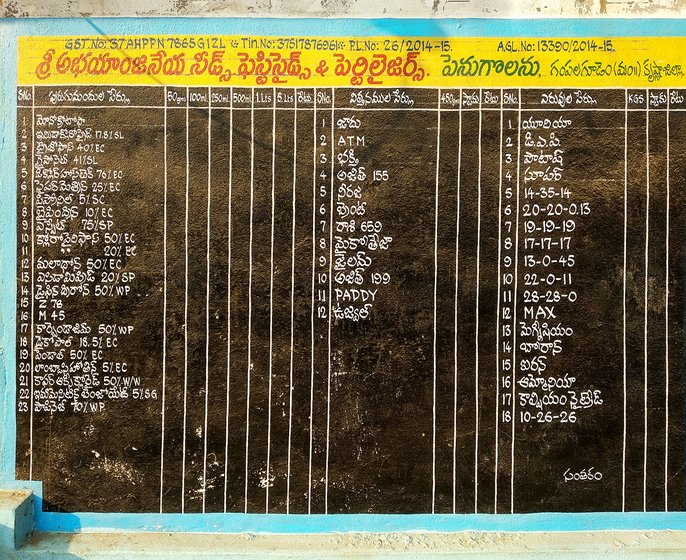 GST.No: 37AHPPN7865G1ZL * Tin.No: 37517876961 * P.L.No: 26/2014-15. A.GL.No: 13390/2014-15.
శ్రీ అభయాంజనేయ సీడ్స్, ఫెస్టిసైడ్స్ & పెర్టిలైజర్స్. పెనుగొలను, గంపలగూడెం (మం॥) కృష్ణాజిల్లా.
S.No. పురుగుమందుల పేర్లు 50gm 100ml 250ml 500ml 1.Lts 5.Lts రేటు
1 మోనోక్రోటోఫాస్
2 ఇమిడాక్లోప్రిడ్ 17.8% SL
3 ట్రైజోఫాస్ 40% EC
4 గ్లైపోసెట్ 41% SL
5 76% EC
6 సైపర్ మెత్రిన్ 25% EC
7 ఫిప్రోనిల్ 5% SC
8 10% EC
9 ఎసిఫేట్ 75% SP
10 క్లోరోపైరిఫాస్ 50% EC
11 " 20% EC
12 మలాథిన్ 50% EC
13 ఎసిటామిప్రిడ్ 20% SP
14 50% WP
15 Z 78
16 M 45
17 కార్బెండాజిమ్ 50% WP
18 డైకోఫాల్ 18.5% EC
19 50% EC
20 5% EC
21 కాపర్ ఆక్సిక్లోరైడ్ 50% W/W
22 ఇమామెక్టిన్ బెంజోయేట్ 5% SG
23 70% WP
S.No. విత్తనముల పేర్లు 450gm ప్యాకెట్ రేటు
1 జాదు
2 ATM
3 భక్తి
4 అజిత్ 155
5 నీరజ
6 బ్రెంట్
7 రాశి 659
8 మైకోతేజా
9 జైలమ్
10 అజిత్ 199
11 PADDY
12 ఉజ్వల్
S.No. ఎరువుల పేర్లు KGS ప్యాకెట్ రేటు
1 యూరియా
2 డి.ఎ.పి.
3 పొటాష్
4 సూపర్
5 14-35-14
6 20-20-0.13
7 19-19-19
8 17-17-17
9 13-0-45
10 22-0-11
11 28-28-0
12 MAX
13 మెగ్నీషియం
14 బోరాన్
15 ఐరన్
16 అమ్మోనియా
17 కాల్షియం నైట్రేడ్
18 10-26-26
సంతకం